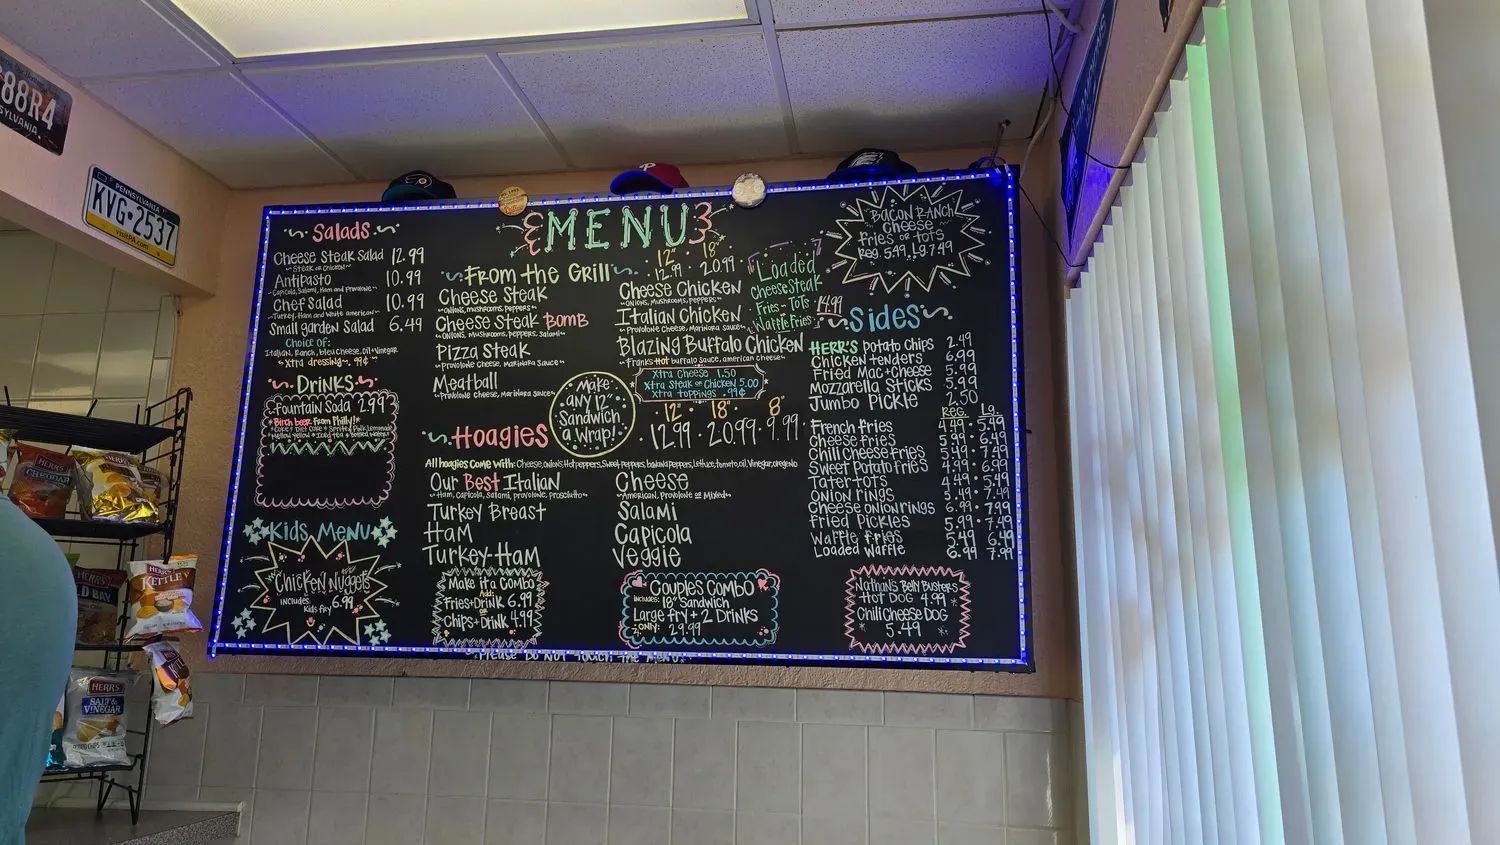 88R4
PENNSYLVANIA
KVG-2537
visitPA.com
MENU
Salads
Cheese Steak Salad 12.99
Steak or Chicken
Antipasto 10.99
Capicola, Salami, Ham and Provolone
Chef Salad 10.99
Turkey, Ham and White american
Small garden Salad 6.49
Choice of:
Italian, Ranch, bleu cheese, oil+Vinegar
Xtra dressing 99¢
Drinks
Fountain Soda 2.99
Birch beer From Philly!
Coke Diet Coke Sprite Pink Lemonade
Mellow Yellow Iced tea bottled water
Kids Menu
Chicken Nuggets
includes: Kids Fry 6.99
From the Grill
12" 18"
12.99 20.99
Cheese Steak
Onions, Mushrooms, Peppers
Cheese Steak Bomb
Onions, Mushrooms, Peppers, Salami
Pizza Steak
Provolone Cheese, Marinara Sauce
Meatball
Provolone Cheese, Marinara Sauce
Cheese Chicken
Onions, Mushrooms, Peppers
Italian Chicken
Provolone Cheese, Marinara Sauce
Blazing Buffalo Chicken
Franks Hot buffalo sauce, american cheese
Xtra Cheese 1.50
Xtra Steak or Chicken 5.00
Xtra toppings .99¢
Make
any 12"
Sandwich
a Wrap!
Hoagies
12" 18" 8"
12.99 20.99 9.99
All hoagies come with: Cheese, onions, Hot peppers, Sweet Peppers, banana peppers, lettuce, tomato, oil, Vinegar, oregeno
Our Best Italian
Ham, Capicola, Salami, provolone, Prosciutto
Turkey Breast
Ham
Turkey-Ham
Cheese
American, Provolone or Mixed
Salami
Capicola
Veggie
Make it a Combo
Add:
Fries+Drink 6.99
or
Chips+Drink 4.99
Couples Combo
includes: 18" Sandwich
Large fry + 2 Drinks
only: 29.99
Please Do Not Touch the Menu
Loaded
Cheese Steak
Fries - Tots
Waffle Fries
14.99
Bacon Ranch
Cheese
Fries or Tots
Reg. 5.99 Lg. 7.49
Sides
HERR'S Potato Chips 2.49
Chicken tenders 6.99
Fried Mac+Cheese 5.99
Mozzarella Sticks 5.99
Jumbo Pickle 2.50
Reg. Lg.
French fries 4.49 5.49
Cheese fries 5.99 6.49
Chili Cheese fries 5.49 7.49
Sweet Potato fries 4.99 6.99
Tater-tots 4.49 5.49
Onion rings 5.49 7.49
Cheese onion rings 6.99 7.99
Fried Pickles 5.99 7.49
Waffle fries 5.49 6.49
Loaded Waffle 6.99 7.99
Nathan's Belly Busters
Hot Dog 4.99
Chili Cheese Dog
5.49
HERR'S
CHEDDAR
HERR'S
HERR'S
KETTLE
HERR'S
SALT &
VINEGAR